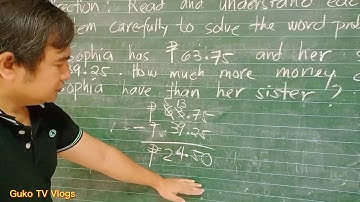 Direction: Read and understand each
problem carefully to solve the word prob
Sophia has ₱63.75 and her
39.25. How much more money
Sophia have than her sister?
5 13
₱ 63.75
- ₱ 39.25
₱24.50
Guko TV Vlogs